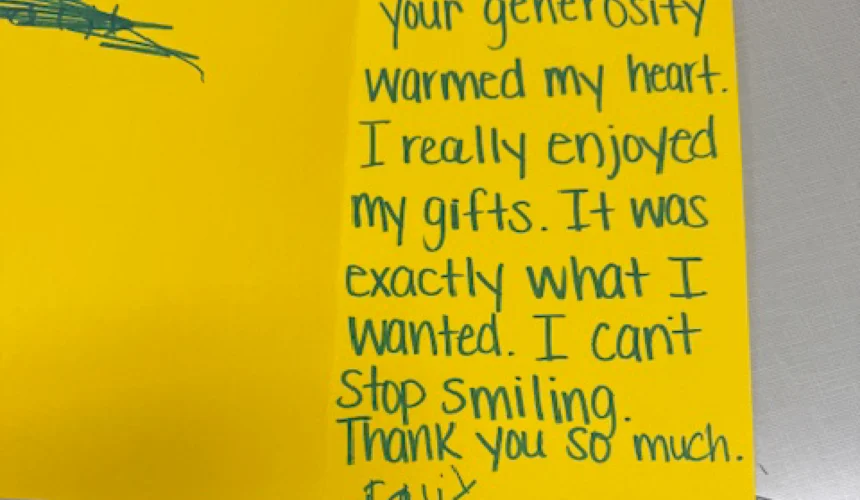 your generosity
warmed my heart.
I really enjoyed
my gifts. It was
exactly what I
wanted. I can't
stop smiling.
Thank you so much.